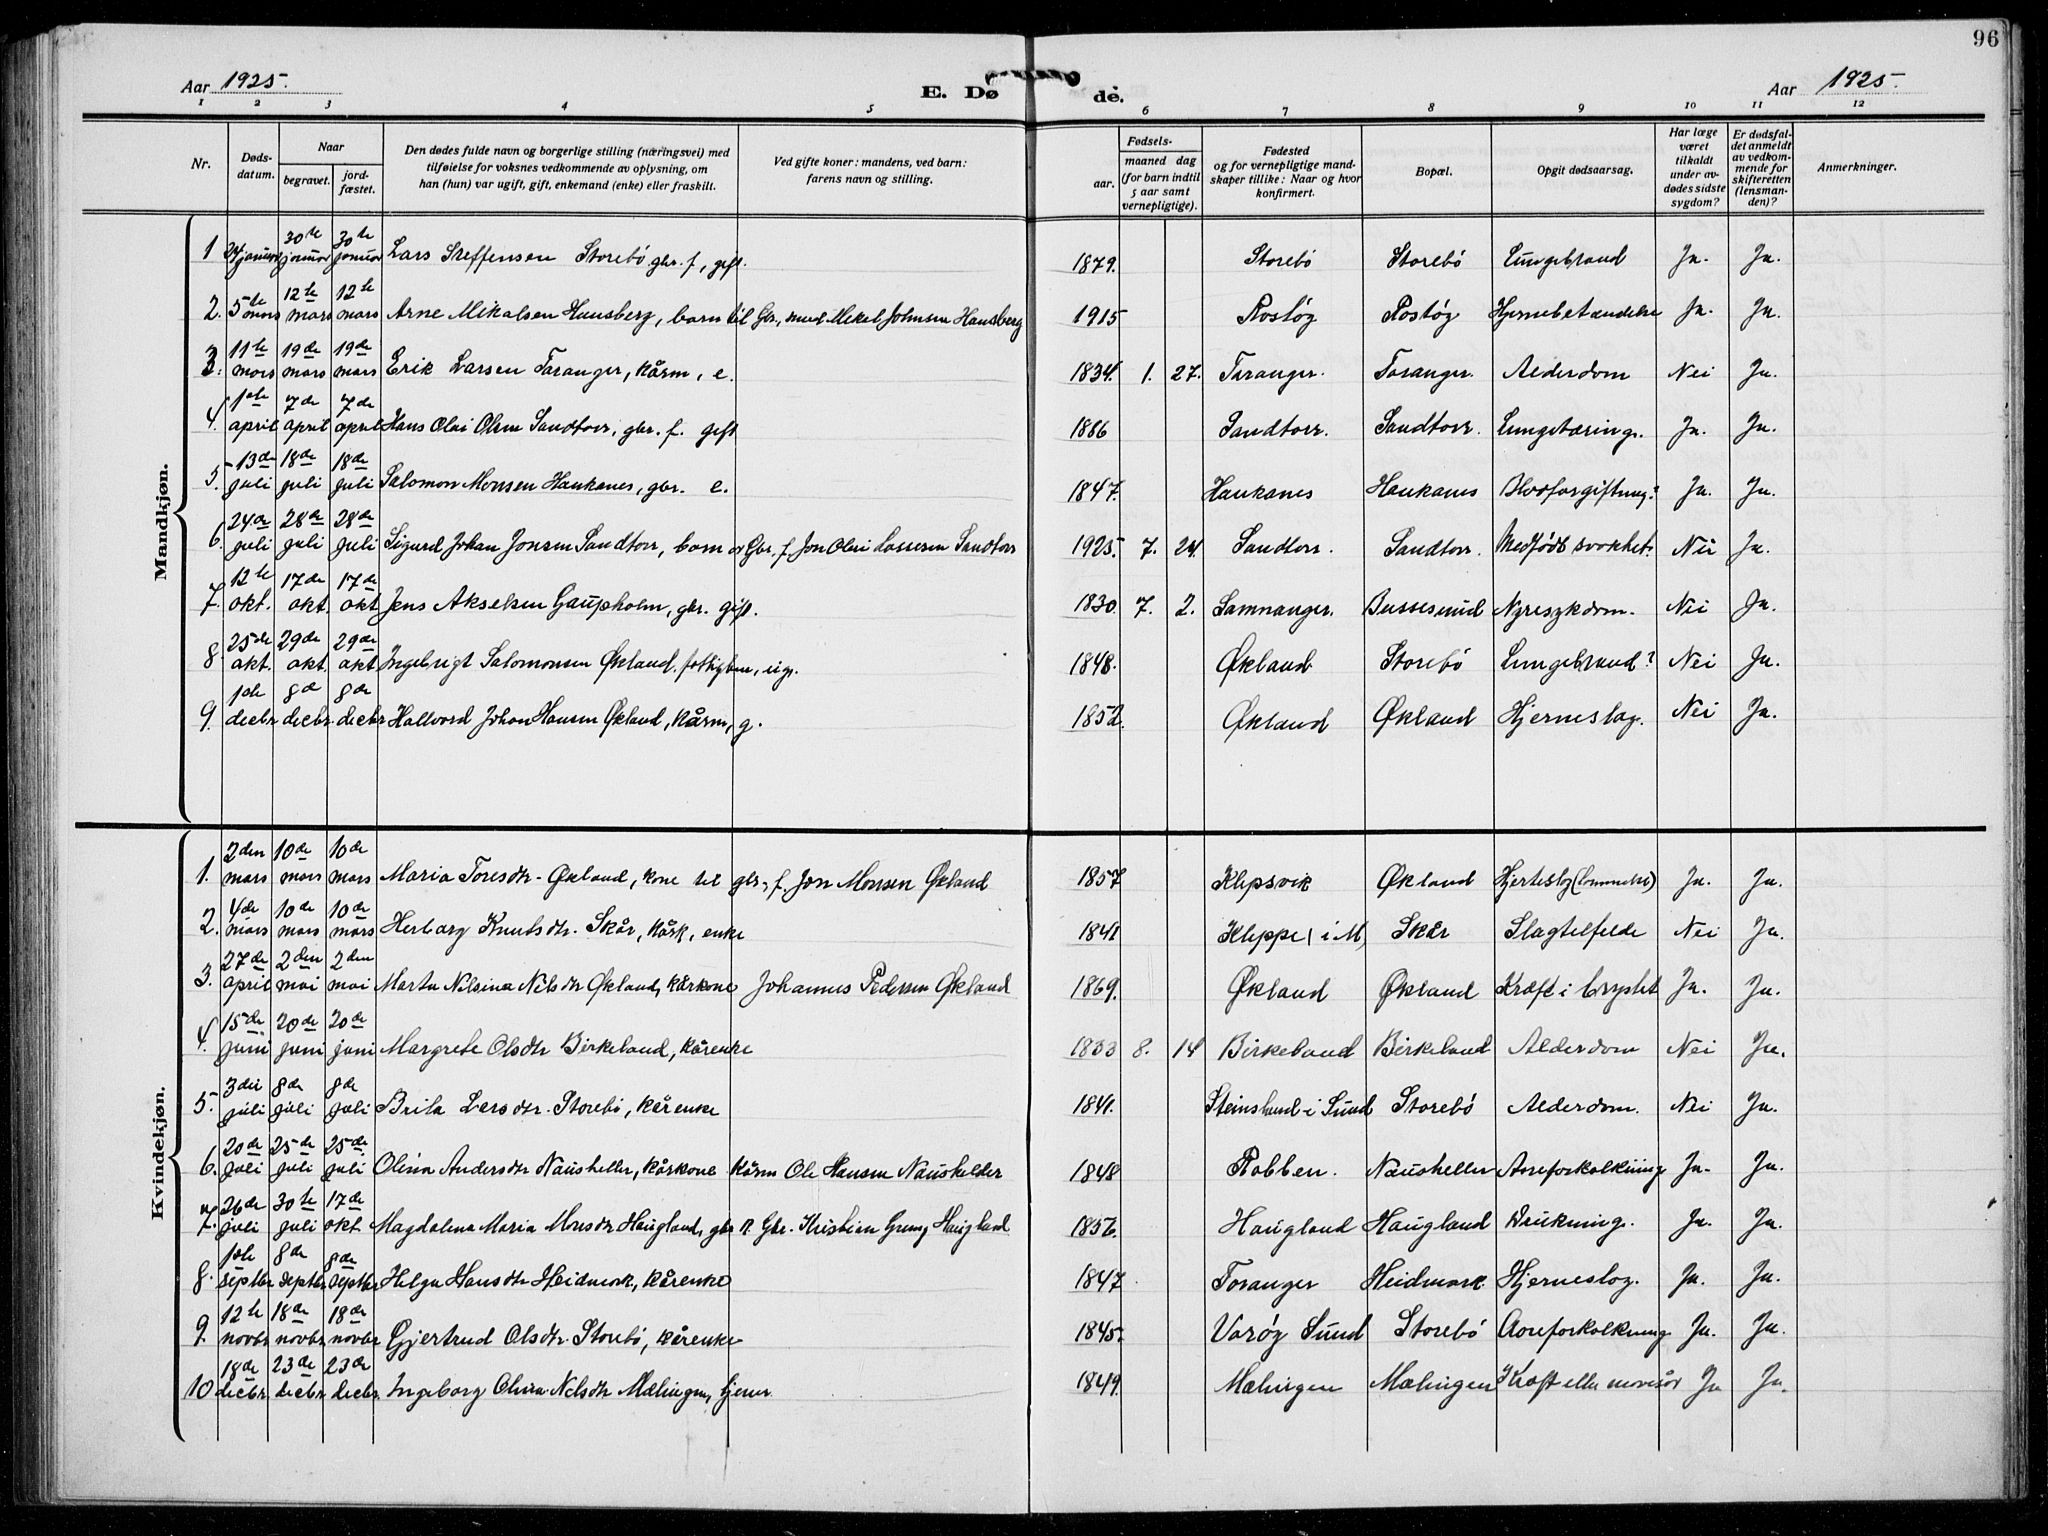 96
Aar 1925.
E. Døde.
Aar 1925.
1 2 3 4 5 6 7 8 9 10 11 12
Nr.
Døds-datum.
Naar
begravet.
jord-fæstet.
Den dødes fulde navn og borgerlige stilling (næringsvei) med
tilføielse for voksnes vedkommende av oplysning, om
han (hun) var ugift, gift, enkemand (enke) eller fraskilt.
Ved gifte koner: mandens, ved barn:
farens navn og stilling.
Fødsels-
aar.
maaned dag
(for barn indtil
5 aar samt
vernepligtige).
Fødested
og for vernepligtige mand-
skaper tillike: Naar og hvor
konfirmert.
Bopæl.
Opgit dødsaarsag.
Har læge
været
tilkaldt
under av-
dødes sidste
sygdom?
Er dødsfal-
det anmeldt
av vedkom-
mende for
skifteretten
(lensman-
den)?
Anmerkninger.
Mandkjøn.
1 24 januar 30te januar 30te januar Lars Steffensen Storebø gbr. f, gift. 1879. Storebø Storebø Lungebrand Ja. Ja.
2. 5te mars 12te mars 12te mars Arne Mikalsen Hausberg, barn til Gbr. Mikal Johnsen Hausberg 1915 Rostøg Rostøg Hjernebetændelse Ja. Ja.
3. 11te mars 19de mars 19de mars Erik Larsen Toranger, kårm, e. 1834. 1. 27. Toranger. Toranger. Alderdom Nei Ja.
4. 1ste april 7de april 7de april Hans Olai Olsen Sandtorv, gbr. f. gift 1886 Sandtorv. Sandtorv. Lungetæring. Ja. Ja.
5. 13de juli 18de juli 18de juli Salomon Monsen Haukanes, gbr. e. 1847. Haukanes Haukanes Blodforgiftning? Ja. Ja.
6. 24de juli 28de juli 28de juli Sigurd Johan Jonsen Sandtorv, barn av Gbr. f. Jon Olai Lassesen Sandtorv 1925. 7. 24. Sandtorv. Sandtorv. Medfødt svakhet. Nei Ja.
7. 12te okt. 17de okt. 17de okt Jens Akselsen Gaupholm, gbr. gift. 1830. 7. 2. Samnanger. Bussesund Nyresykdom. Nei Ja.
8. 25de okt. 29de okt. 29de okt Ingebrigt Salomonsen Økland, fattiglem, ug. 1848. Økland Storebø Lungebrand? Nei Ja.
9. 1ste decbr 8de decbr. 8de decbr Hallvord Johan Hansen Økland, kårm, g. 1852. Økland Økland Hjerneslag. Nei Ja.
Kvindekjøn.
1. 2den mars 10de mars 10de mars Maria Toresdtr. Økland, kone til gbr. f. Jon Monsen Økland 1857 Klepsvik Økland Hjerteslag Ja. Ja.
2. 4de mars 10de mars 10de mars Herborg Knutsdtr. Skår, kårk, enke 1841 Kleppe i M. Skår Slagtilfelde Nei Ja.
3. 27de april 2den mai 2den mai Marta Nilsina Nilsdtr Økland, kårkone Johannes Pedersen Økland 1869. Økland Økland Kræft i brystet Ja. Ja.
4. 15de juni 20de juni 20de juni Margrete Olsdtr Birkeland, kårenke 1833 8. 14 Birkeland Birkeland Alderdom Nei Ja.
5. 3die juli 8de juli 8de juli Brita Larsdtr. Storebø, kårenke 1841. Steinsland i Sund Storebø Alderdom. Nei Ja.
6. 20de juli 25de juli 25de juli Olina Andersdtr Nausheller, kårkone kårm Ole Hansen Naushelder 1848 Robben. Nausheller Aareforkalkning Ja. Ja.
7. 26de juli 30te juli 17de okt Magdalena Maria Monsdtr Haugland, gbr k. Gbr. Kristian Grung Haugland 1856. Haugland Haugland Drukning. Ja. Ja.
8. 1ste septbr 8de septbr 8de septbr Helga Hansdtr Heidmark, kårenke 1847 Toranger Heidmark Hjerneslag. Ja. Ja.
9. 12te novbr 18de novbr. 18de novbr Gjertrud Olsdtr. Storebø, kårenke 1845. Varøy Sund Storebø Aareforkalkning Ja. Ja.
10 18de decbr. 23de decbr. 23de decbr. Ingeborg Olina Nilsdtr Mælingen, tjener 1849. Mælingen Mælingen Kræft eller mavesår Ja Ja.